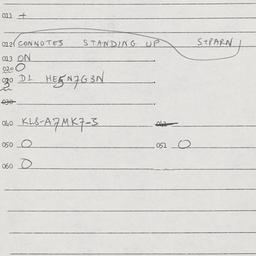 011 +
012 CONNOTES STANDING UP SPARN
013 ON
020 O
030 DL HE5N7G3N
030
040 KL8-A7MK7-3
050 O 051 O
060 O